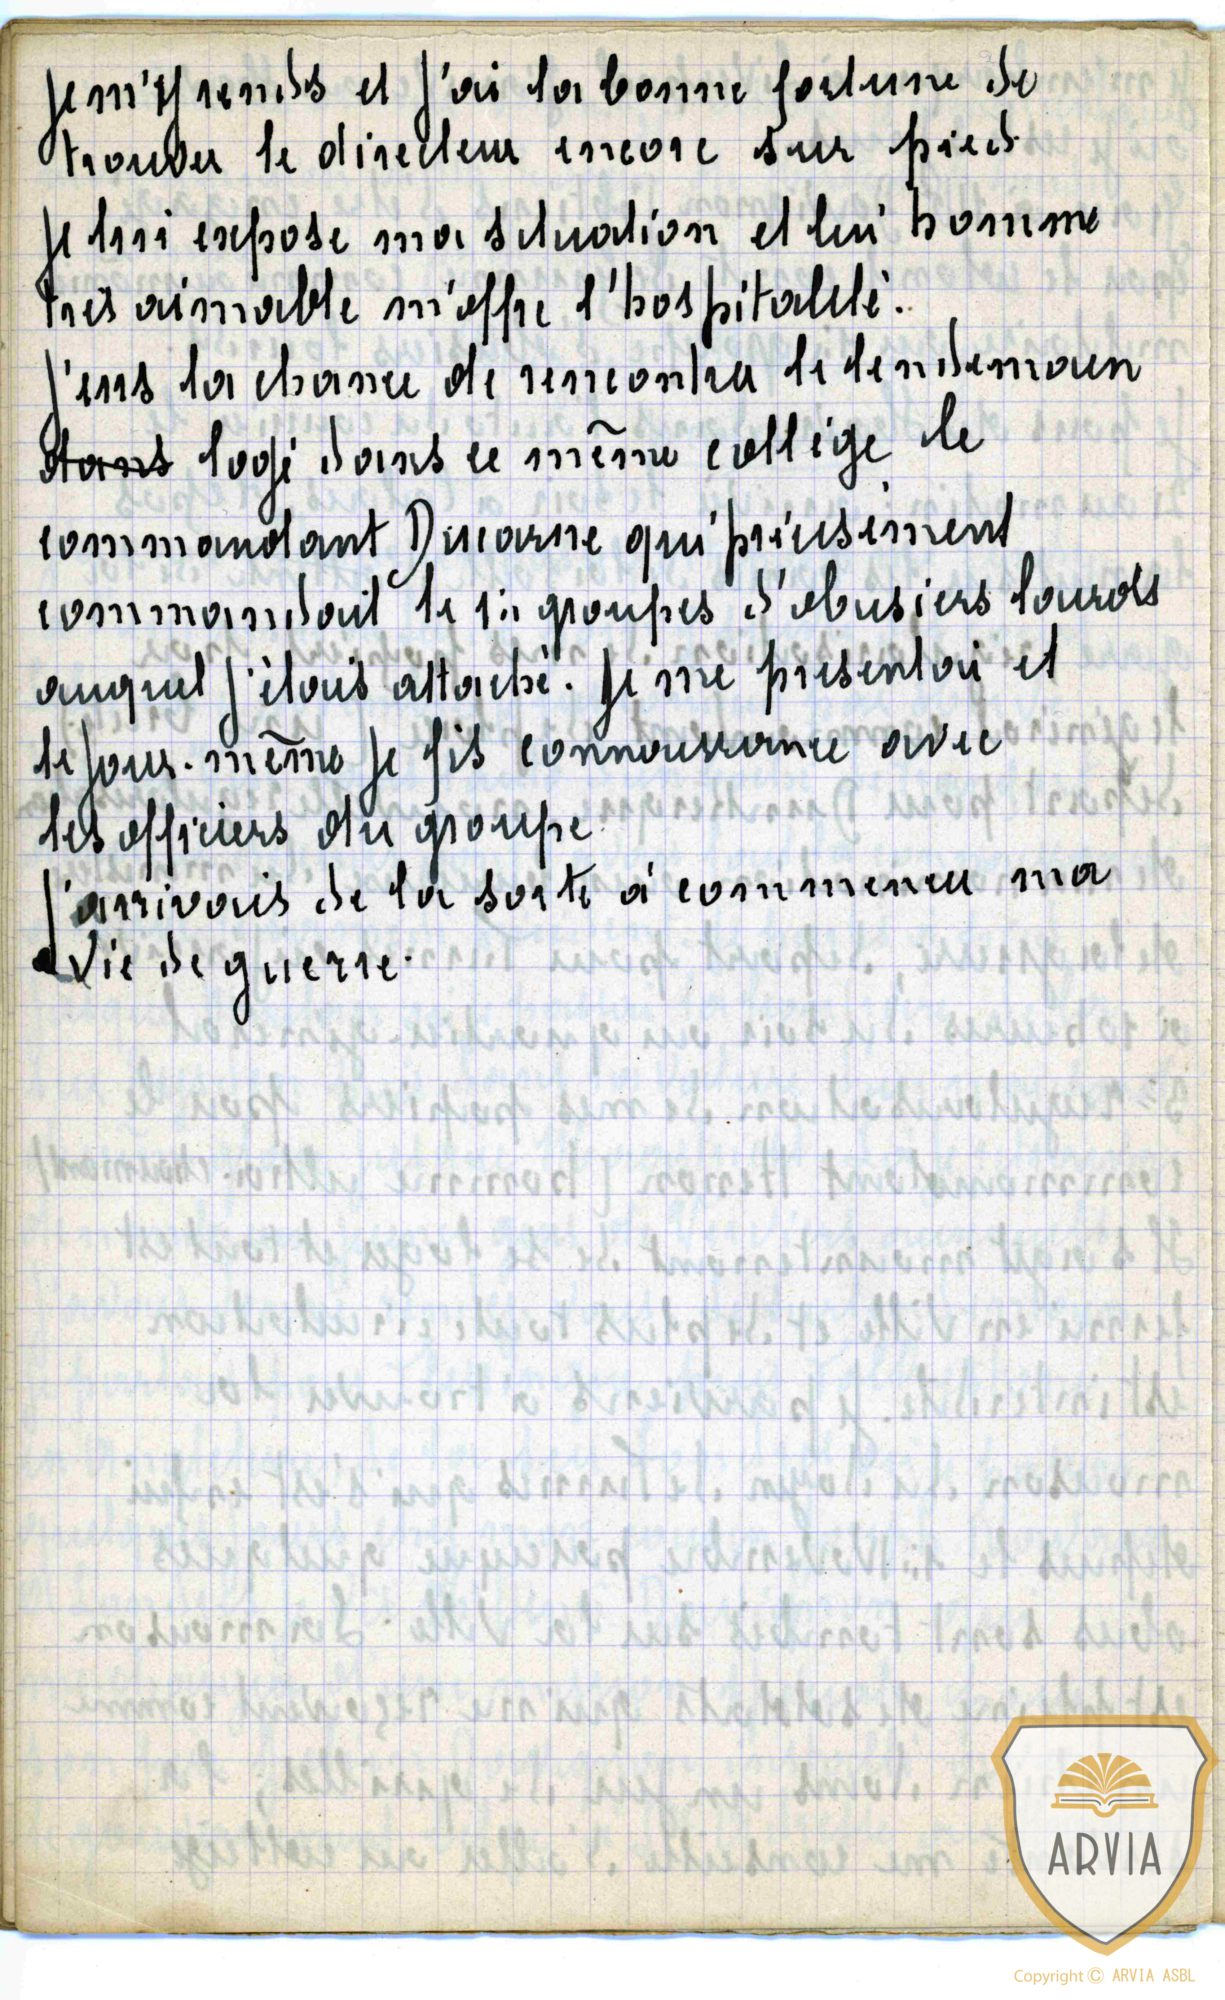 Je m'y rends et j'ai la bonne fortune de
trouver le directeur encore sur pied.
Je lui expose ma situation et lui homme
très aimable m'offre l'hospitalité.
J'eus la chance de rencontrer le lendemain
dans logé dans ce même collège le
commandant Ducarne qui précisément
commandait le groupes d'obusiers lourds
auquel j'étais attaché. Je me présentai et
le jour-même je fis connaissance avec
les officiers du groupe.
J'arrivais de la sorte à commencer ma
vie de guerre.
ARVIA
Copyright © ARVIA ASBL